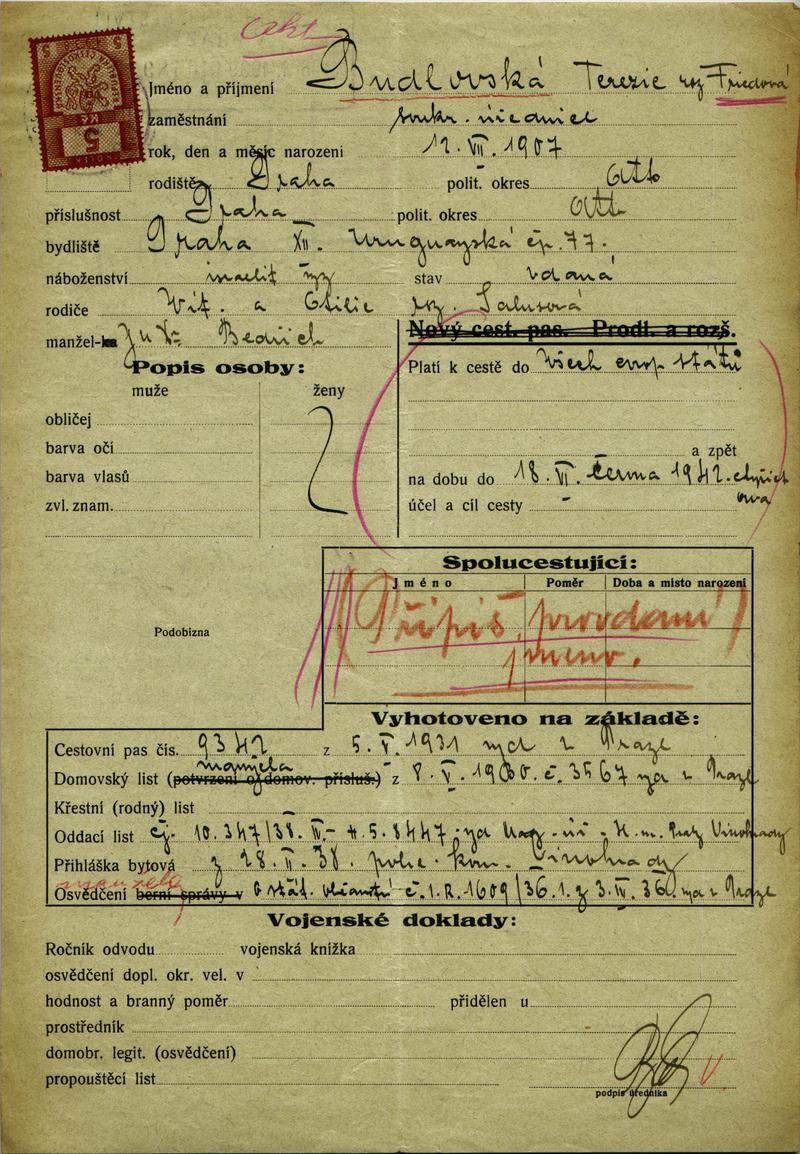 5 Kč
Jméno a příjmení Budlovská Terezie roz Friedová
zaměstnání soukr. úřednice
rok, den a měsíc narození 12. VII. 1907
rodiště Praha polit. okres
příslušnost Praha polit. okres
bydliště Praha XII. Uruguayská čp. 77.
náboženství stav vdaná
rodiče Vít. a Otilie roz.
manžel-ka Bedřich
Nový cest. pas. Prodl. a rozš.
Popis osoby:
Platí k cestě do všech evrop. států
muže ženy
obličej
barva očí
a zpět
barva vlasů
na dobu do 18. VI. června 1942.
zvl. znam.
účel a cíl cesty -
Spolucestující:
Jméno Poměr Doba a místo narození
Připiš. provdané
jméno.
Podobizna
Vyhotoveno na základě:
Cestovní pas čís. 9342 z 5. V. 1931 v Praze
manžela
Domovský list (potvrzení o domov. přísluš.) z č. 3567 v Praze
Křestní (rodný) list -
Oddací list čj. 10.347/38. Vinohrady
Přihláška bytová z 18. II. 38. polic. kom. Vinohrady
Osvědčení berní správy v o stát. občanství č. 1. R. 1609/36. 1. z 3. 36. v Praze
Vojenské doklady:
Ročník odvodu vojenská knížka
osvědčení dopl. okr. vel. v
hodnost a branný poměr přidělen u
prostředník
domobr. legit. (osvědčení)
propouštěcí list
podpis úředníka